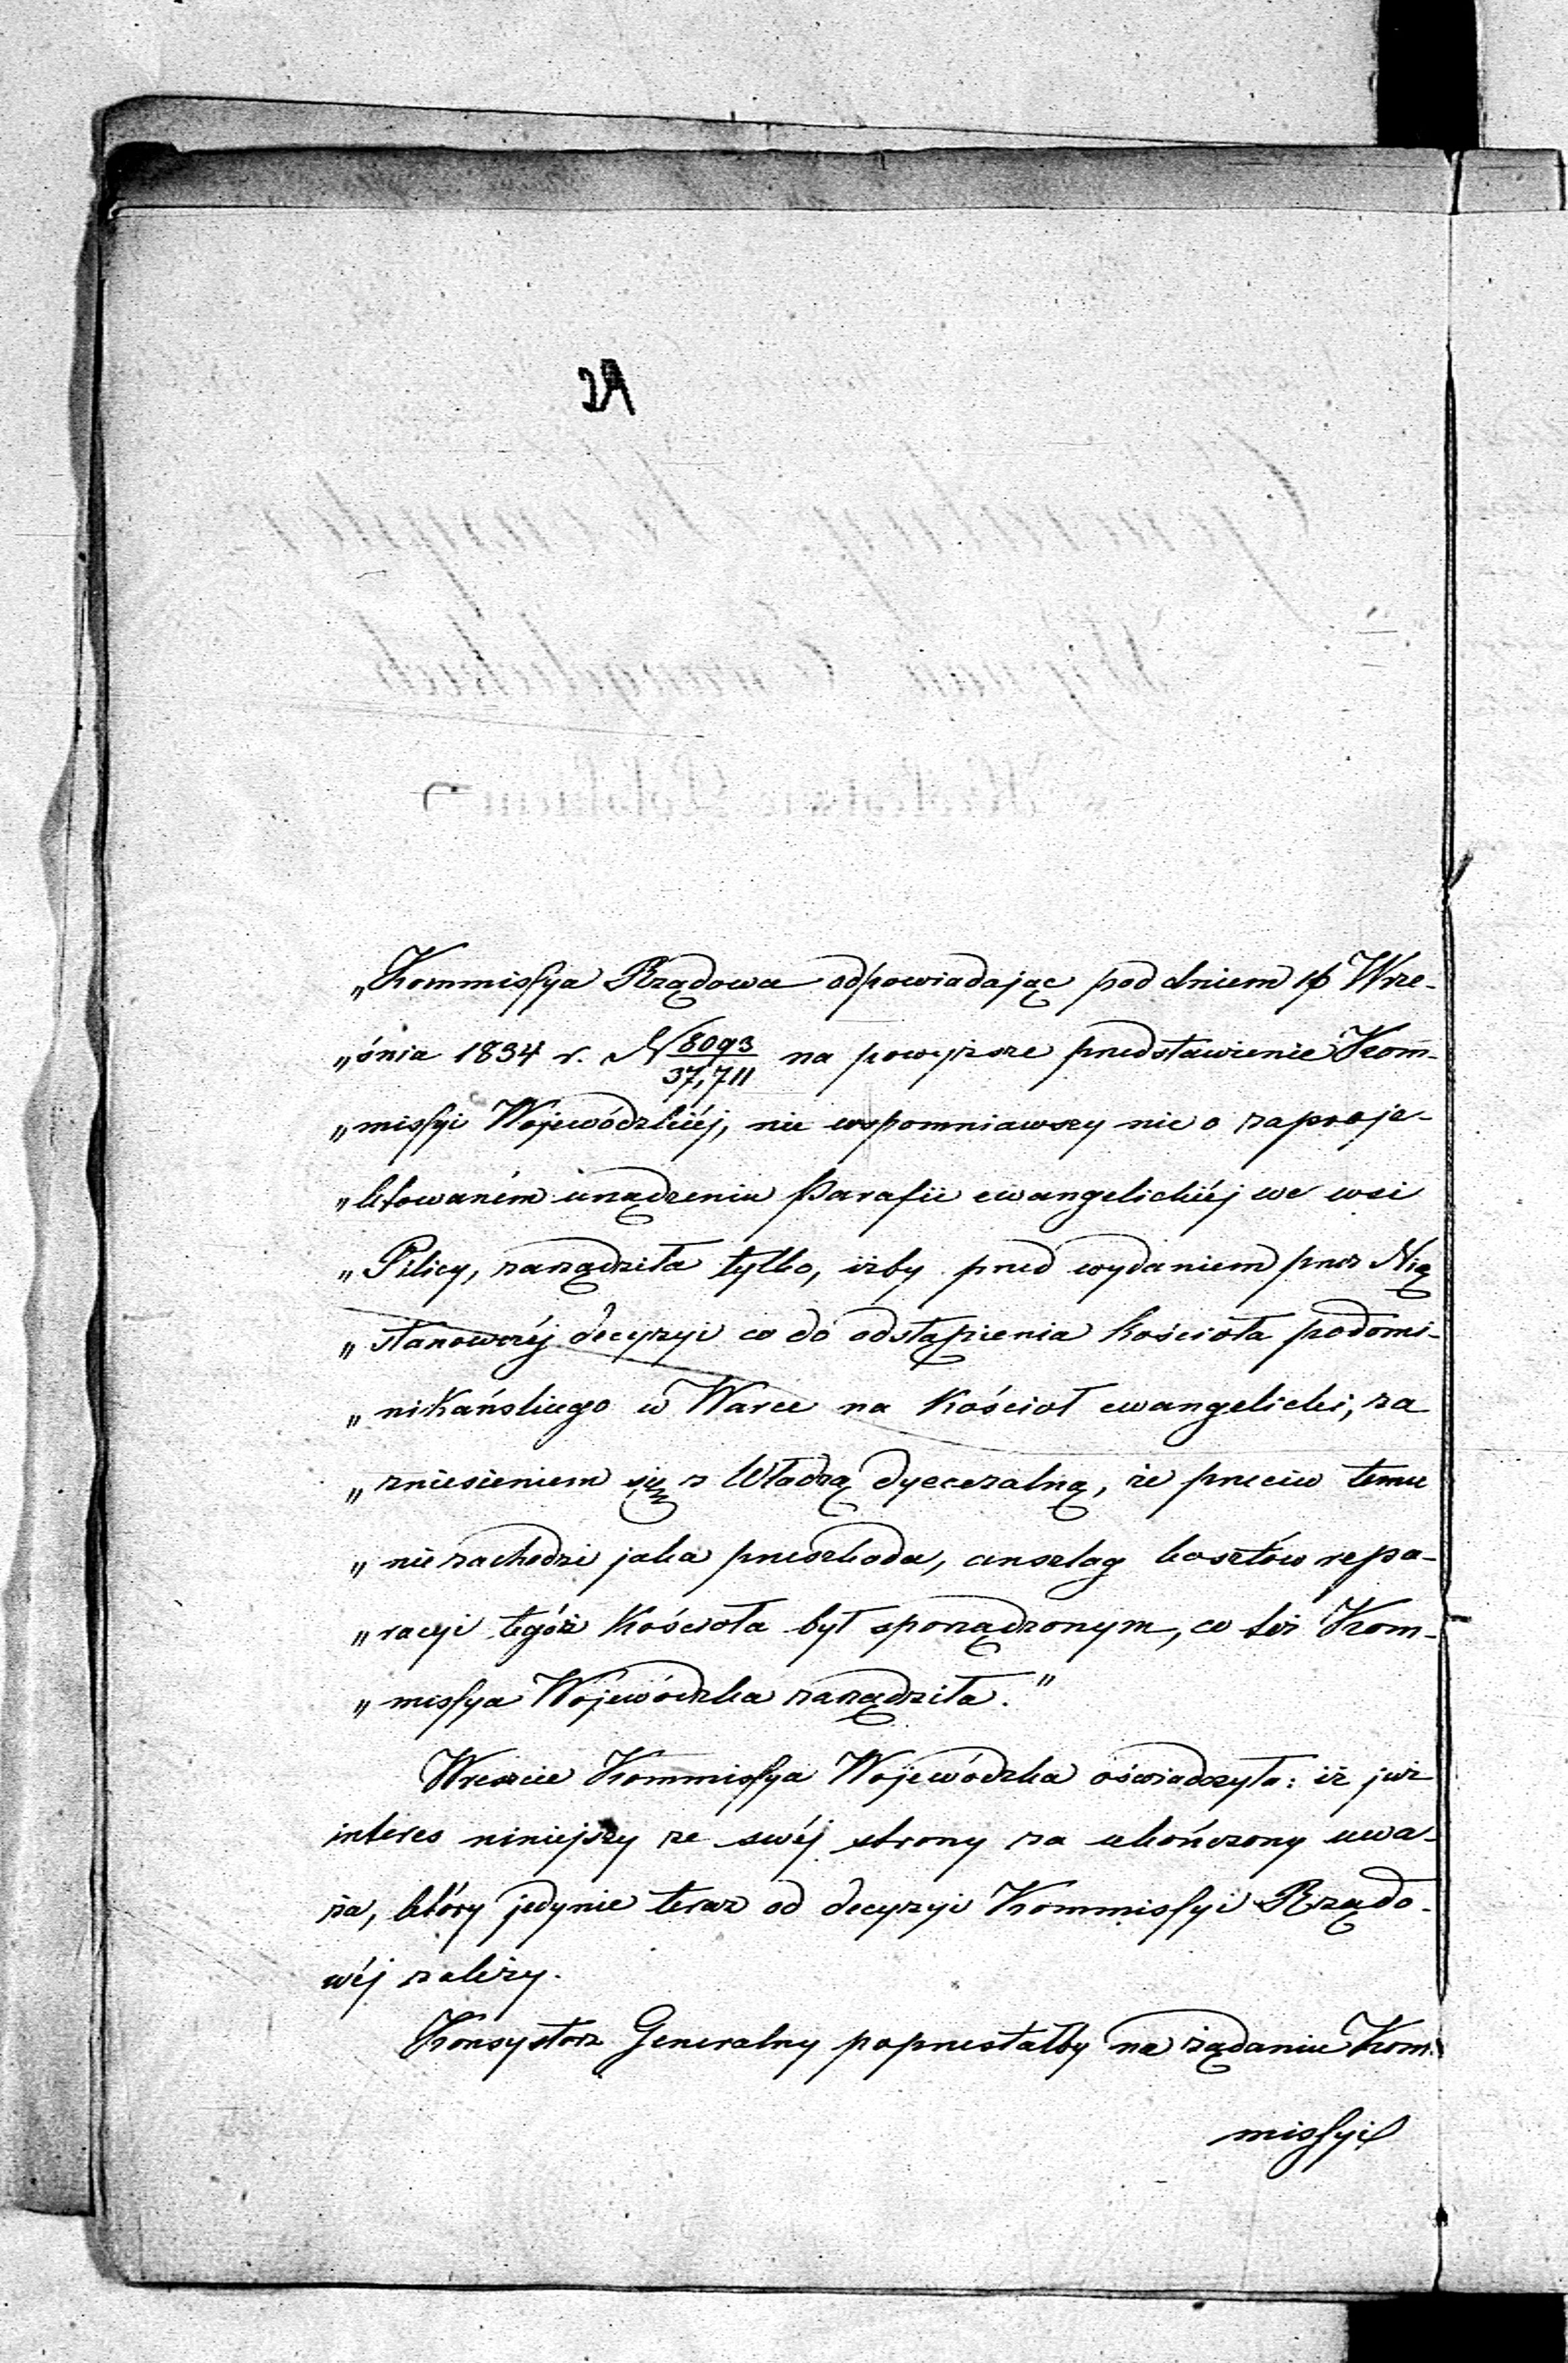 24
„Kommissya Rządowa odpowiadając pod dniem 16 Wrze-
„śnia 1834 r. N 8093/37,711 na powyższe przedstawienie Kom-
„missyi Wojewódzkiéj, nie wspomniawszy nic o zaproje-
„ktowaném urządzeniu Parafii ewangelickiéj we wsi
„Pilicy, zarządziła tylko, iżby przed wydaniem przez Nią
„stanowczéj decyzyi co do odstąpienia Kościoła podomi-
„nikańskiego w Warce na Kościoł ewangelicki, za
„zniesieniem się z Władzą dyecezalną, że przeciw temu
„nie zachodzi jaka przeszkoda, anszlag kosztów repa-
„racyi tegóż Kościoła był sporządzonym, co też Kom-
„missya Wojewódzka zarządziła."
Wreszcie Kommissya Wojewódzka oświadczyła: iż już
interes niniejszy ze swéj strony za ukończony uwa-
ża, który jedynie teraz od decyzyi Kommissyi Rządo-
wéj zależy.
Konsystorz Generalny poprzestałby na żądaniu Kom-
missyi